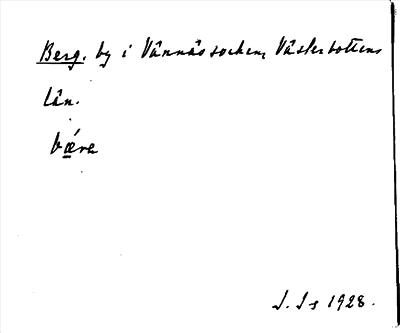 Berg. by i Vännäs socken, Västerbottens
län.
bǽra
J. Js 1928.